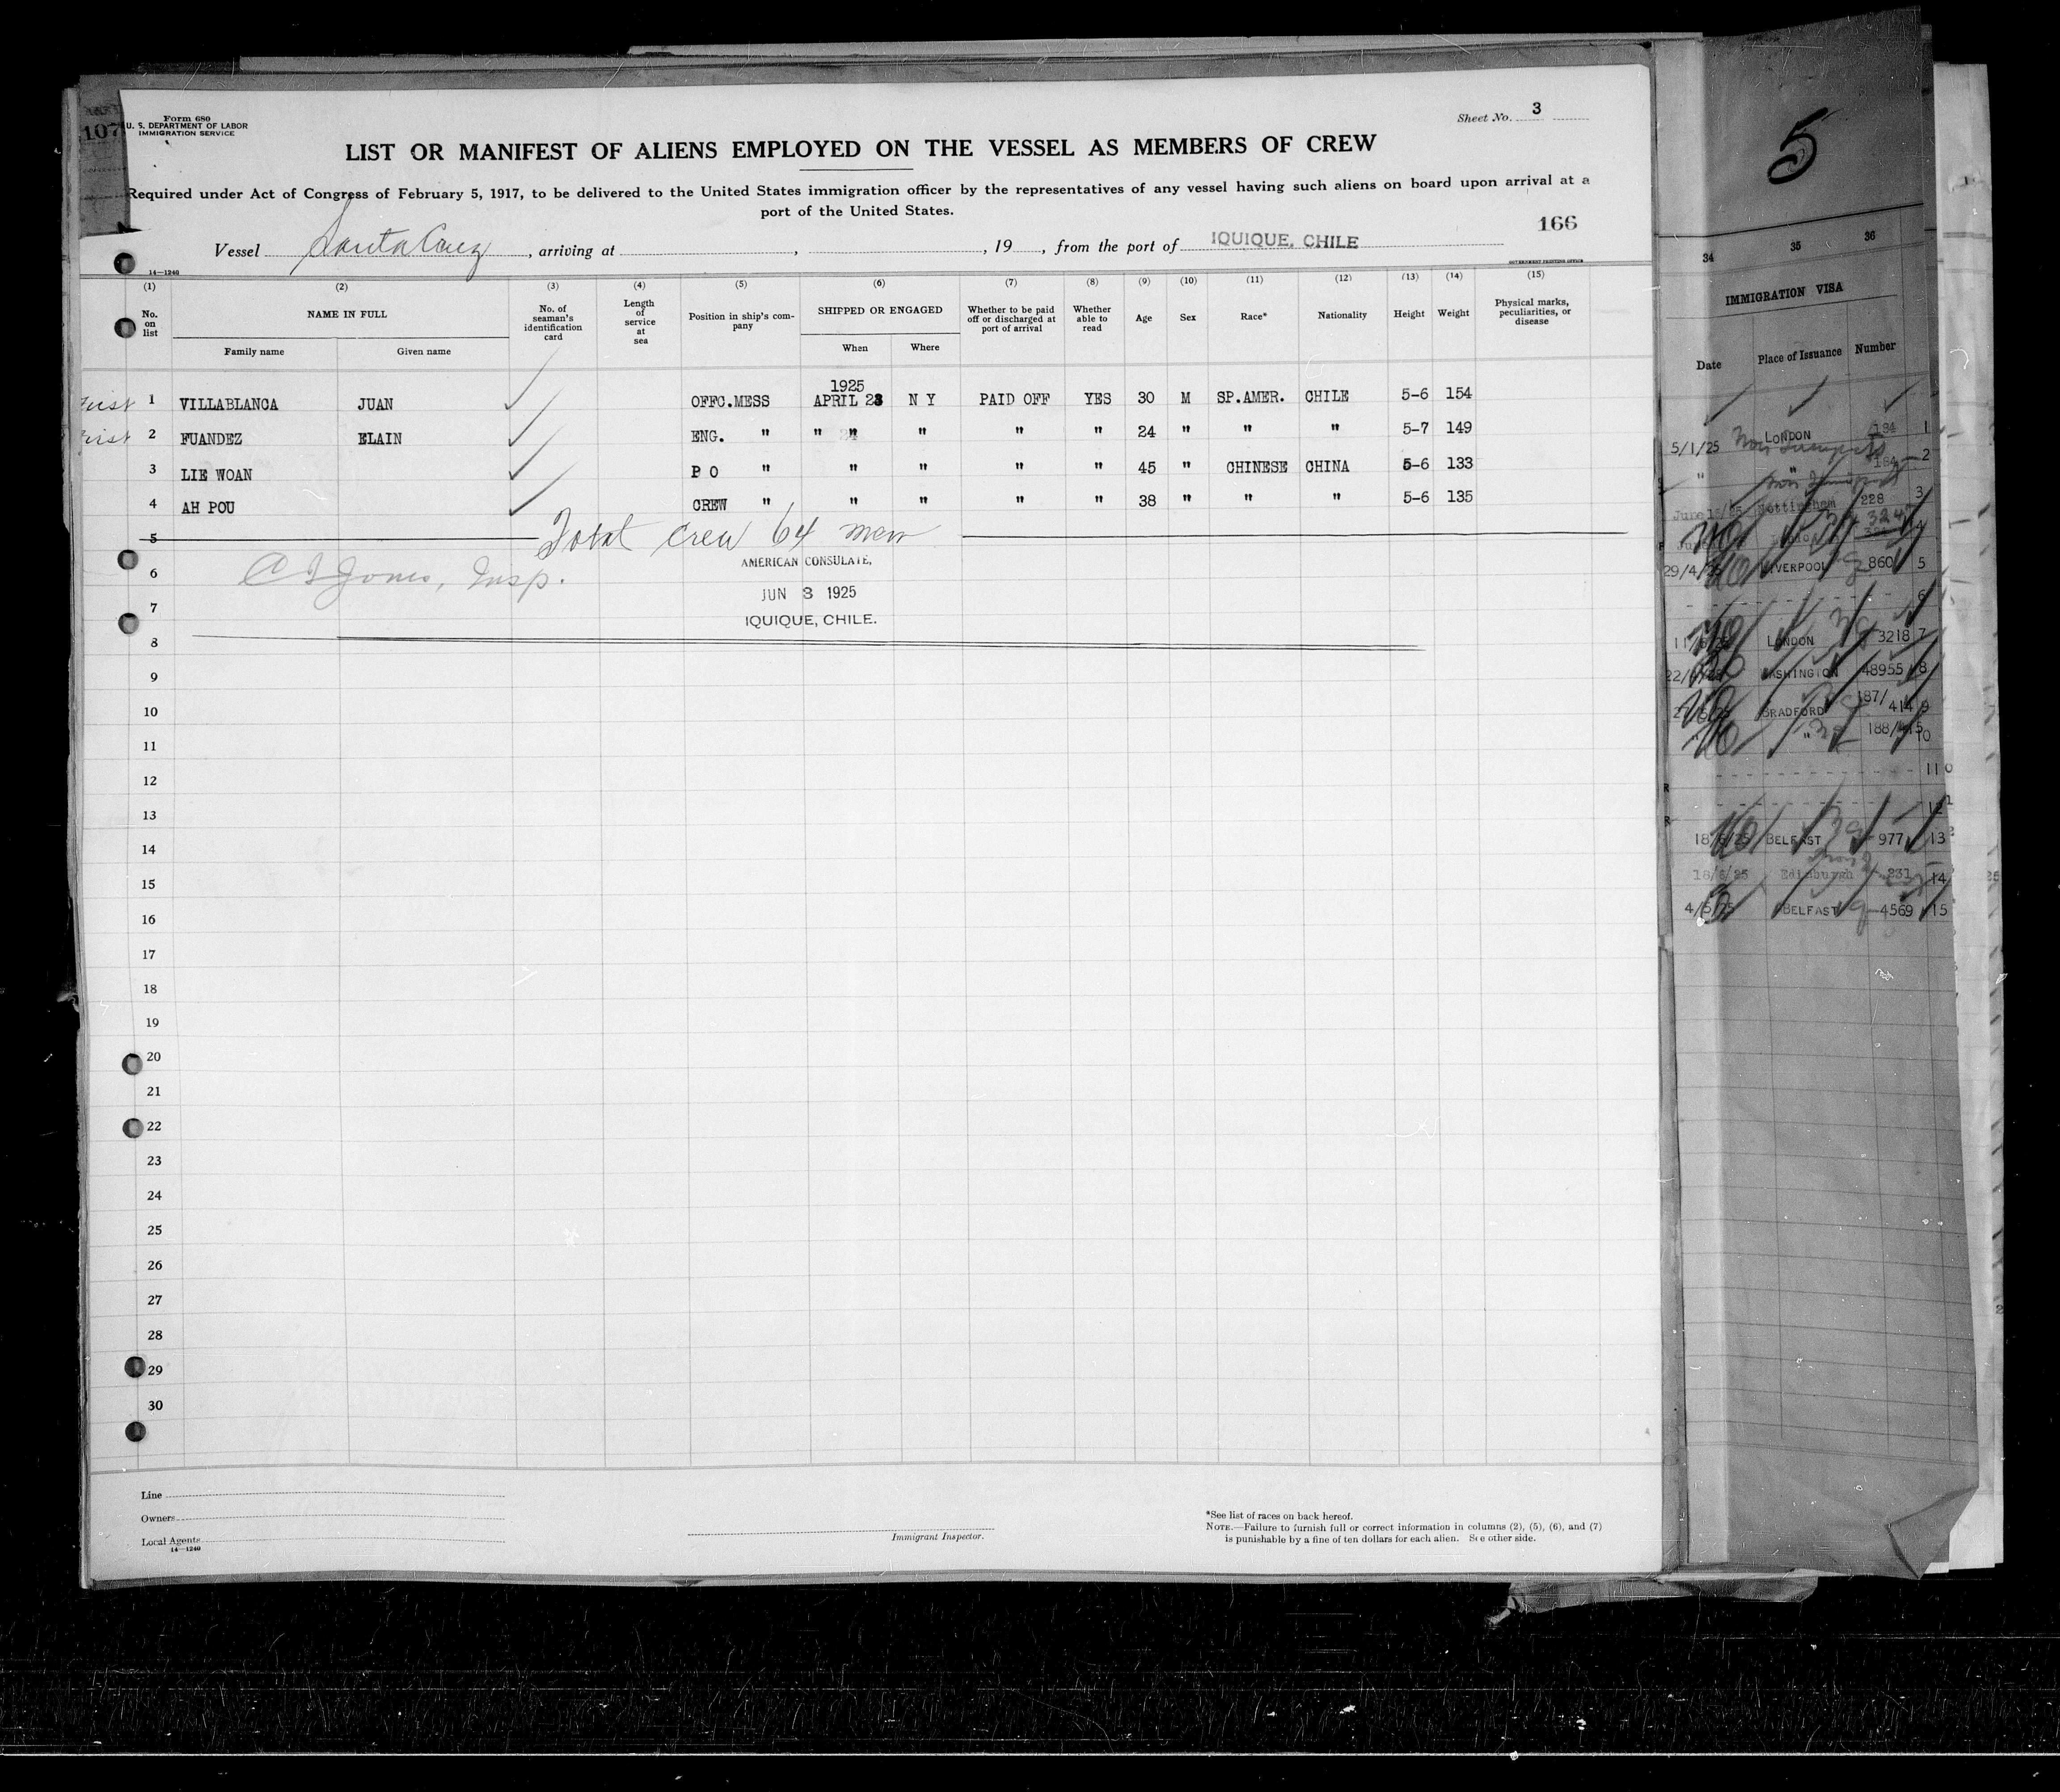 107
Form 680
U. S. DEPARTMENT OF LABOR
IMMIGRATION SERVICE
Sheet No. 3
LIST OR MANIFEST OF ALIENS EMPLOYED ON THE VESSEL AS MEMBERS OF CREW
Required under Act of Congress of February 5, 1917, to be delivered to the United States immigration officer by the representatives of any vessel having such aliens on board upon arrival at a
port of the United States.
166
Vessel Santa Cruz, arriving at , , 19 , from the port of IQUIQUE, CHILE
14—1240
GOVERNMENT PRINTING OFFICE
(1) (2) (3) (4) (5) (6) (7) (8) (9) (10) (11) (12) (13) (14) (15)
No. on list NAME IN FULL No. of seaman's identification card Length of service at sea Position in ship's company SHIPPED OR ENGAGED Whether to be paid off or discharged at port of arrival Whether able to read Age Sex Race* Nationality Height Weight Physical marks, peculiarities, or disease
Family name Given name When Where
1925
First 1 VILLABLANCA JUAN OFFC.MESS APRIL 23 N Y PAID OFF YES 30 M SP.AMER. CHILE 5-6 154
First 2 FUANDEZ ELAIN ENG. " " " " " " 24 " " " 5-7 149
3 LIE WOAN P O " " " " " 45 " CHINESE CHINA 5-6 133
4 AH POU CREW " " " " " 38 " " " 5-6 135
5 Total crew 64 men
AMERICAN CONSULATE,
6 C I Jones, Insp.
JUN 3 1925
7
IQUIQUE, CHILE.
8
9
10
11
12
13
14
15
16
17
18
19
20
21
22
23
24
25
26
27
28
29
30
Line
Owners
Local Agents
14—1240
Immigrant Inspector.
*See list of races on back hereof.
NOTE.—Failure to furnish full or correct information in columns (2), (5), (6), and (7)
is punishable by a fine of ten dollars for each alien. See other side.
5
34 35 36
IMMIGRATION VISA
Date Place of Issuance Number
5/1/25 LONDON 184 1
" " 184 2
Nottingham 228 3
29/4/25 LIVERPOOL 860 5
6
LONDON 3218 7
WASHINGTON 48955 8
BRADFORD 187/414 9
" 188/415 10
11
12
18/6/25 BELFAST 977 13
18/6/25 Edinburgh 231 14
4/5/25 BELFAST 4569 15